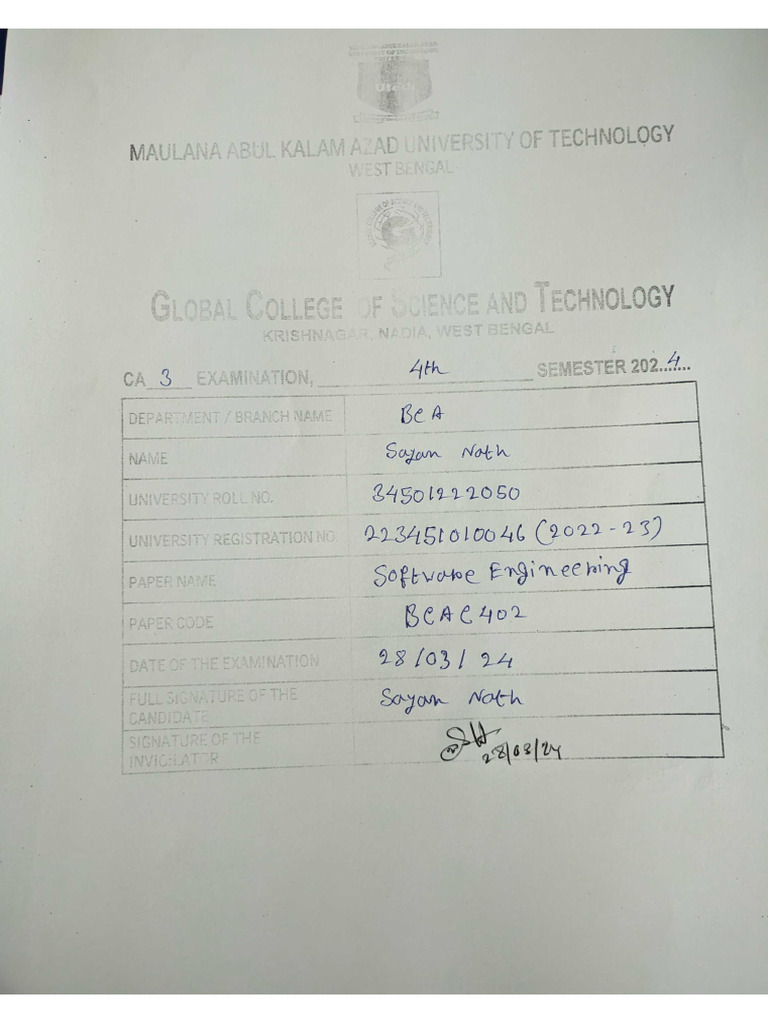 Utech
MAULANA ABUL KALAM AZAD UNIVERSITY OF TECHNOLOGY
WEST BENGAL
GLOBAL COLLEGE OF SCIENCE AND TECHNOLOGY
KRISHNAGAR, NADIA, WEST BENGAL
CA 3 EXAMINATION, 4th SEMESTER 2024
DEPARTMENT / BRANCH NAME BCA
NAME Sayan Nath
UNIVERSITY ROLL NO. 34501222050
UNIVERSITY REGISTRATION NO. 223451010046 (2022-23)
PAPER NAME Software Engineering
PAPER CODE BCAC402
DATE OF THE EXAMINATION 28/03/24
FULL SIGNATURE OF THE Sayan Nath
CANDIDATE
SIGNATURE OF THE
INVIGILATOR 28/03/24